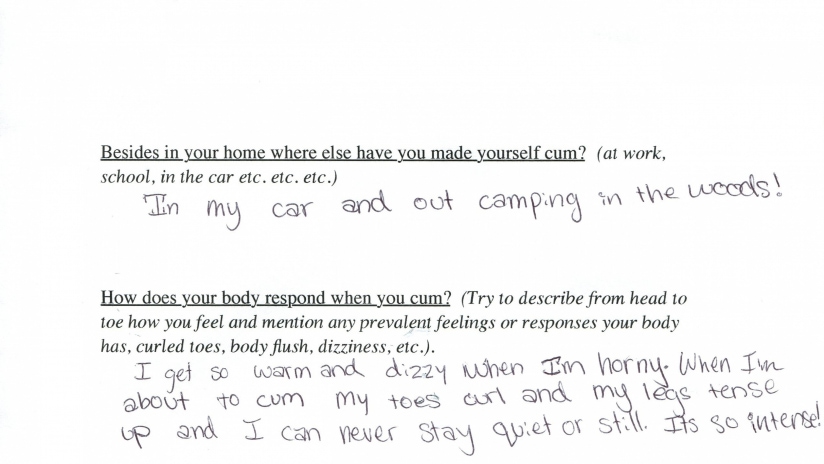 Besides in your home where else have you made yourself cum? (at work,
school, in the car etc. etc. etc.)
In my car and out camping in the woods!
How does your body respond when you cum? (Try to describe from head to
toe how you feel and mention any prevalent feelings or responses your body
has, curled toes, body flush, dizziness, etc.).
I get so warm and dizzy when I'm horny. When I'm
about to cum my toes curl and my legs tense
up and I can never stay quiet or still. Its so intense!